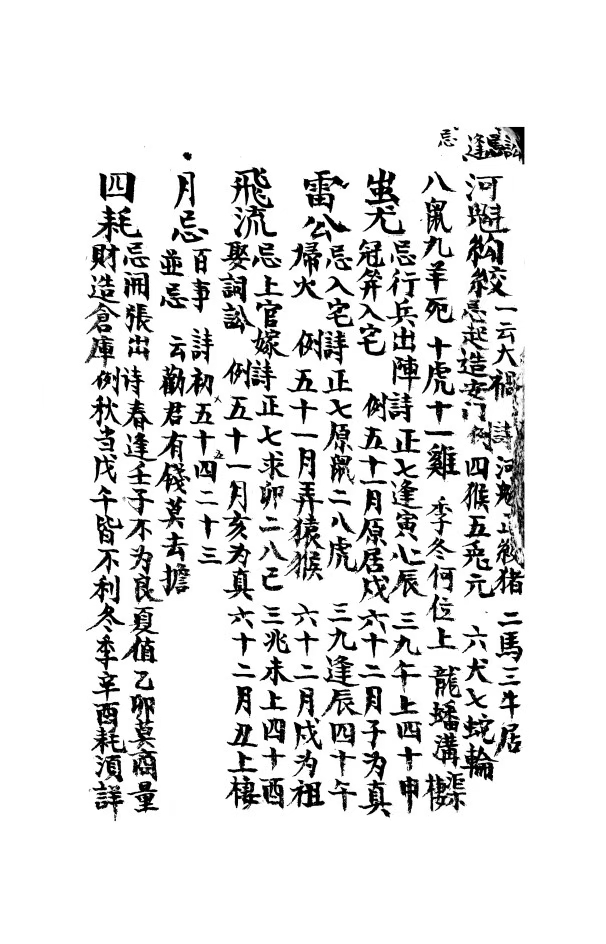 忌 逢 訟
河魁鈎絞 一云大禍 詩 河魁正猪 二馬三牛居
忌起造安门 例 四猴五兎元 六犬七蛇輪
八鼠九羊死 十虎十一雞 季冬何位上 龍蟠溝渠棲
蚩尤 忌行兵出陣 詩 正七逢寅二八辰 三九午上四十申
冠筓入宅 例 五十一月原居戌 六十二月子为真
雷公 忌入宅 詩 正七原鼠二八虎 三九逢辰四十午
婦火 例 五十一月弄猿猴 六十二月戍为祖
飛流 忌上官嫁 詩 正七求卯二八己 三兆未上四十酉
娶詞訟 例 五十一月亥为真 六十二月丑上棲
月忌 百事 詩 初五十四二十三
並忌 云 勸君有錢莫去擔
四耗 忌開張出 诗 春逢壬子不为良 夏值乙卯莫商量
財造倉庫 例 秋当戊午皆不利 冬季辛酉耗須詳